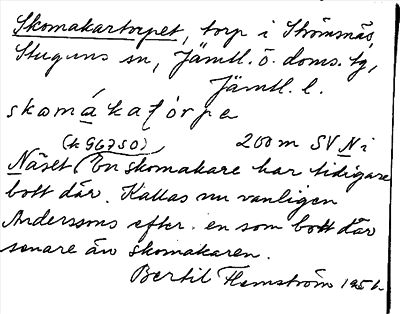 Skomakartorpet, torp i Strömsnäs,
Stuguns sn, Jämtl. ö. doms. tg,
Jämtl. l.
skomákatórpe
(k 96750) 200 m SV N i
Näset (En skomakare har tidigare
bott där. Kallas nu vanligen
Anderssons efter en som bott där
senare än skomakaren.
Bertil Flemström 1956